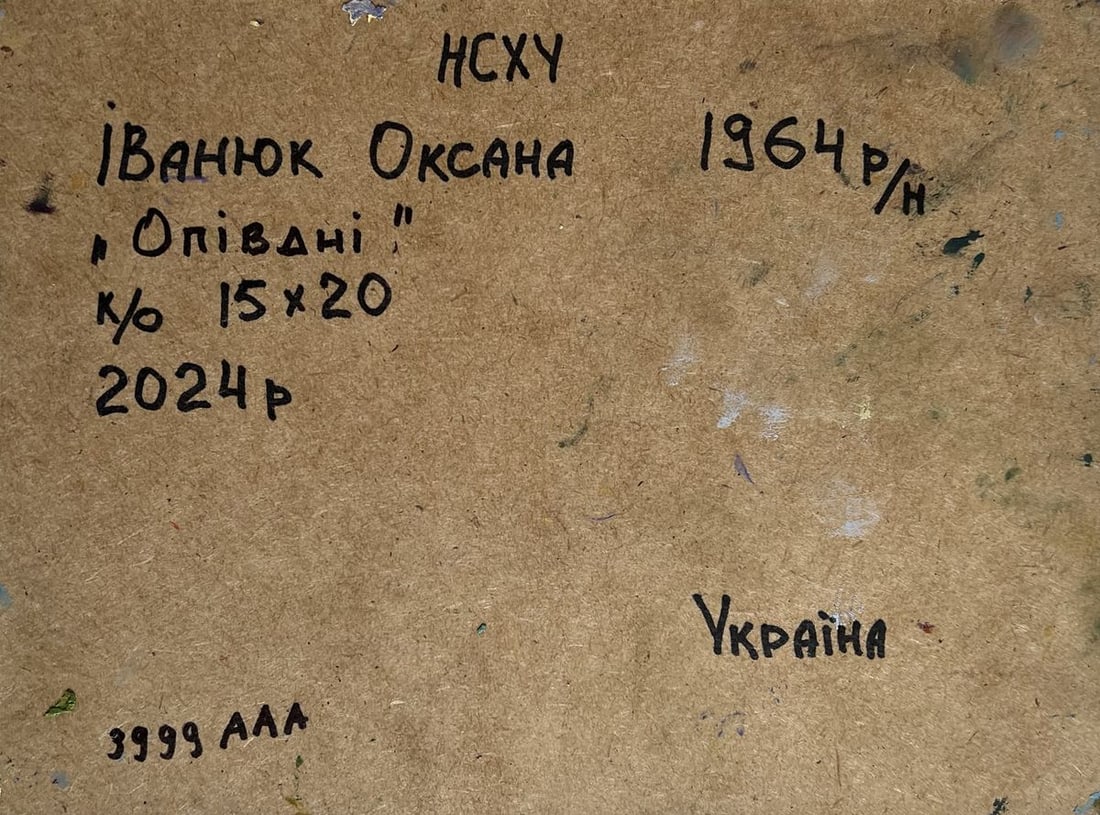 НСХУ
Іванюк Оксана 1964 р/н
„Опівдні"
к/о 15х20
2024р
Україна
3999 ААА